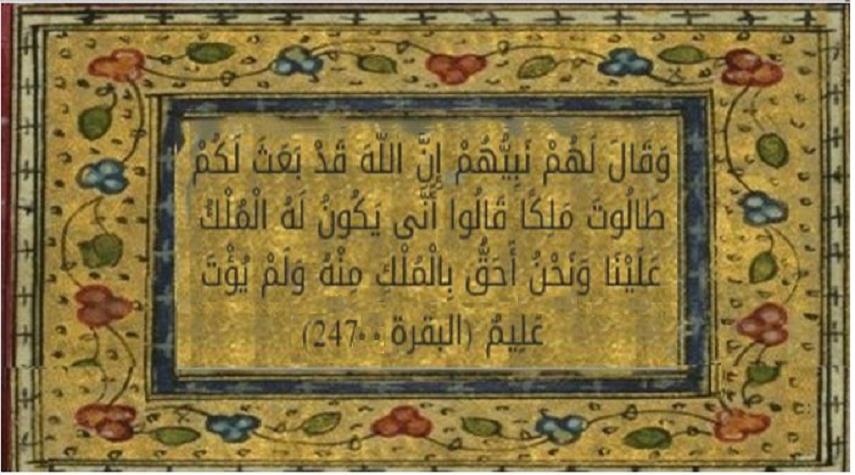 وَقَالَ لَهُمْ نَبِيُّهُمْ إِنَّ اللَّهَ قَدْ بَعَثَ لَكُمْ
طَالُوتَ مَلِكًا قَالُوا أَنَّى يَكُونُ لَهُ الْمُلْكُ
عَلَيْنَا وَنَحْنُ أَحَقُّ بِالْمُلْكِ مِنْهُ وَلَمْ يُؤْتَ
عَلِيمٌ (البقرة ٠٠ 247)